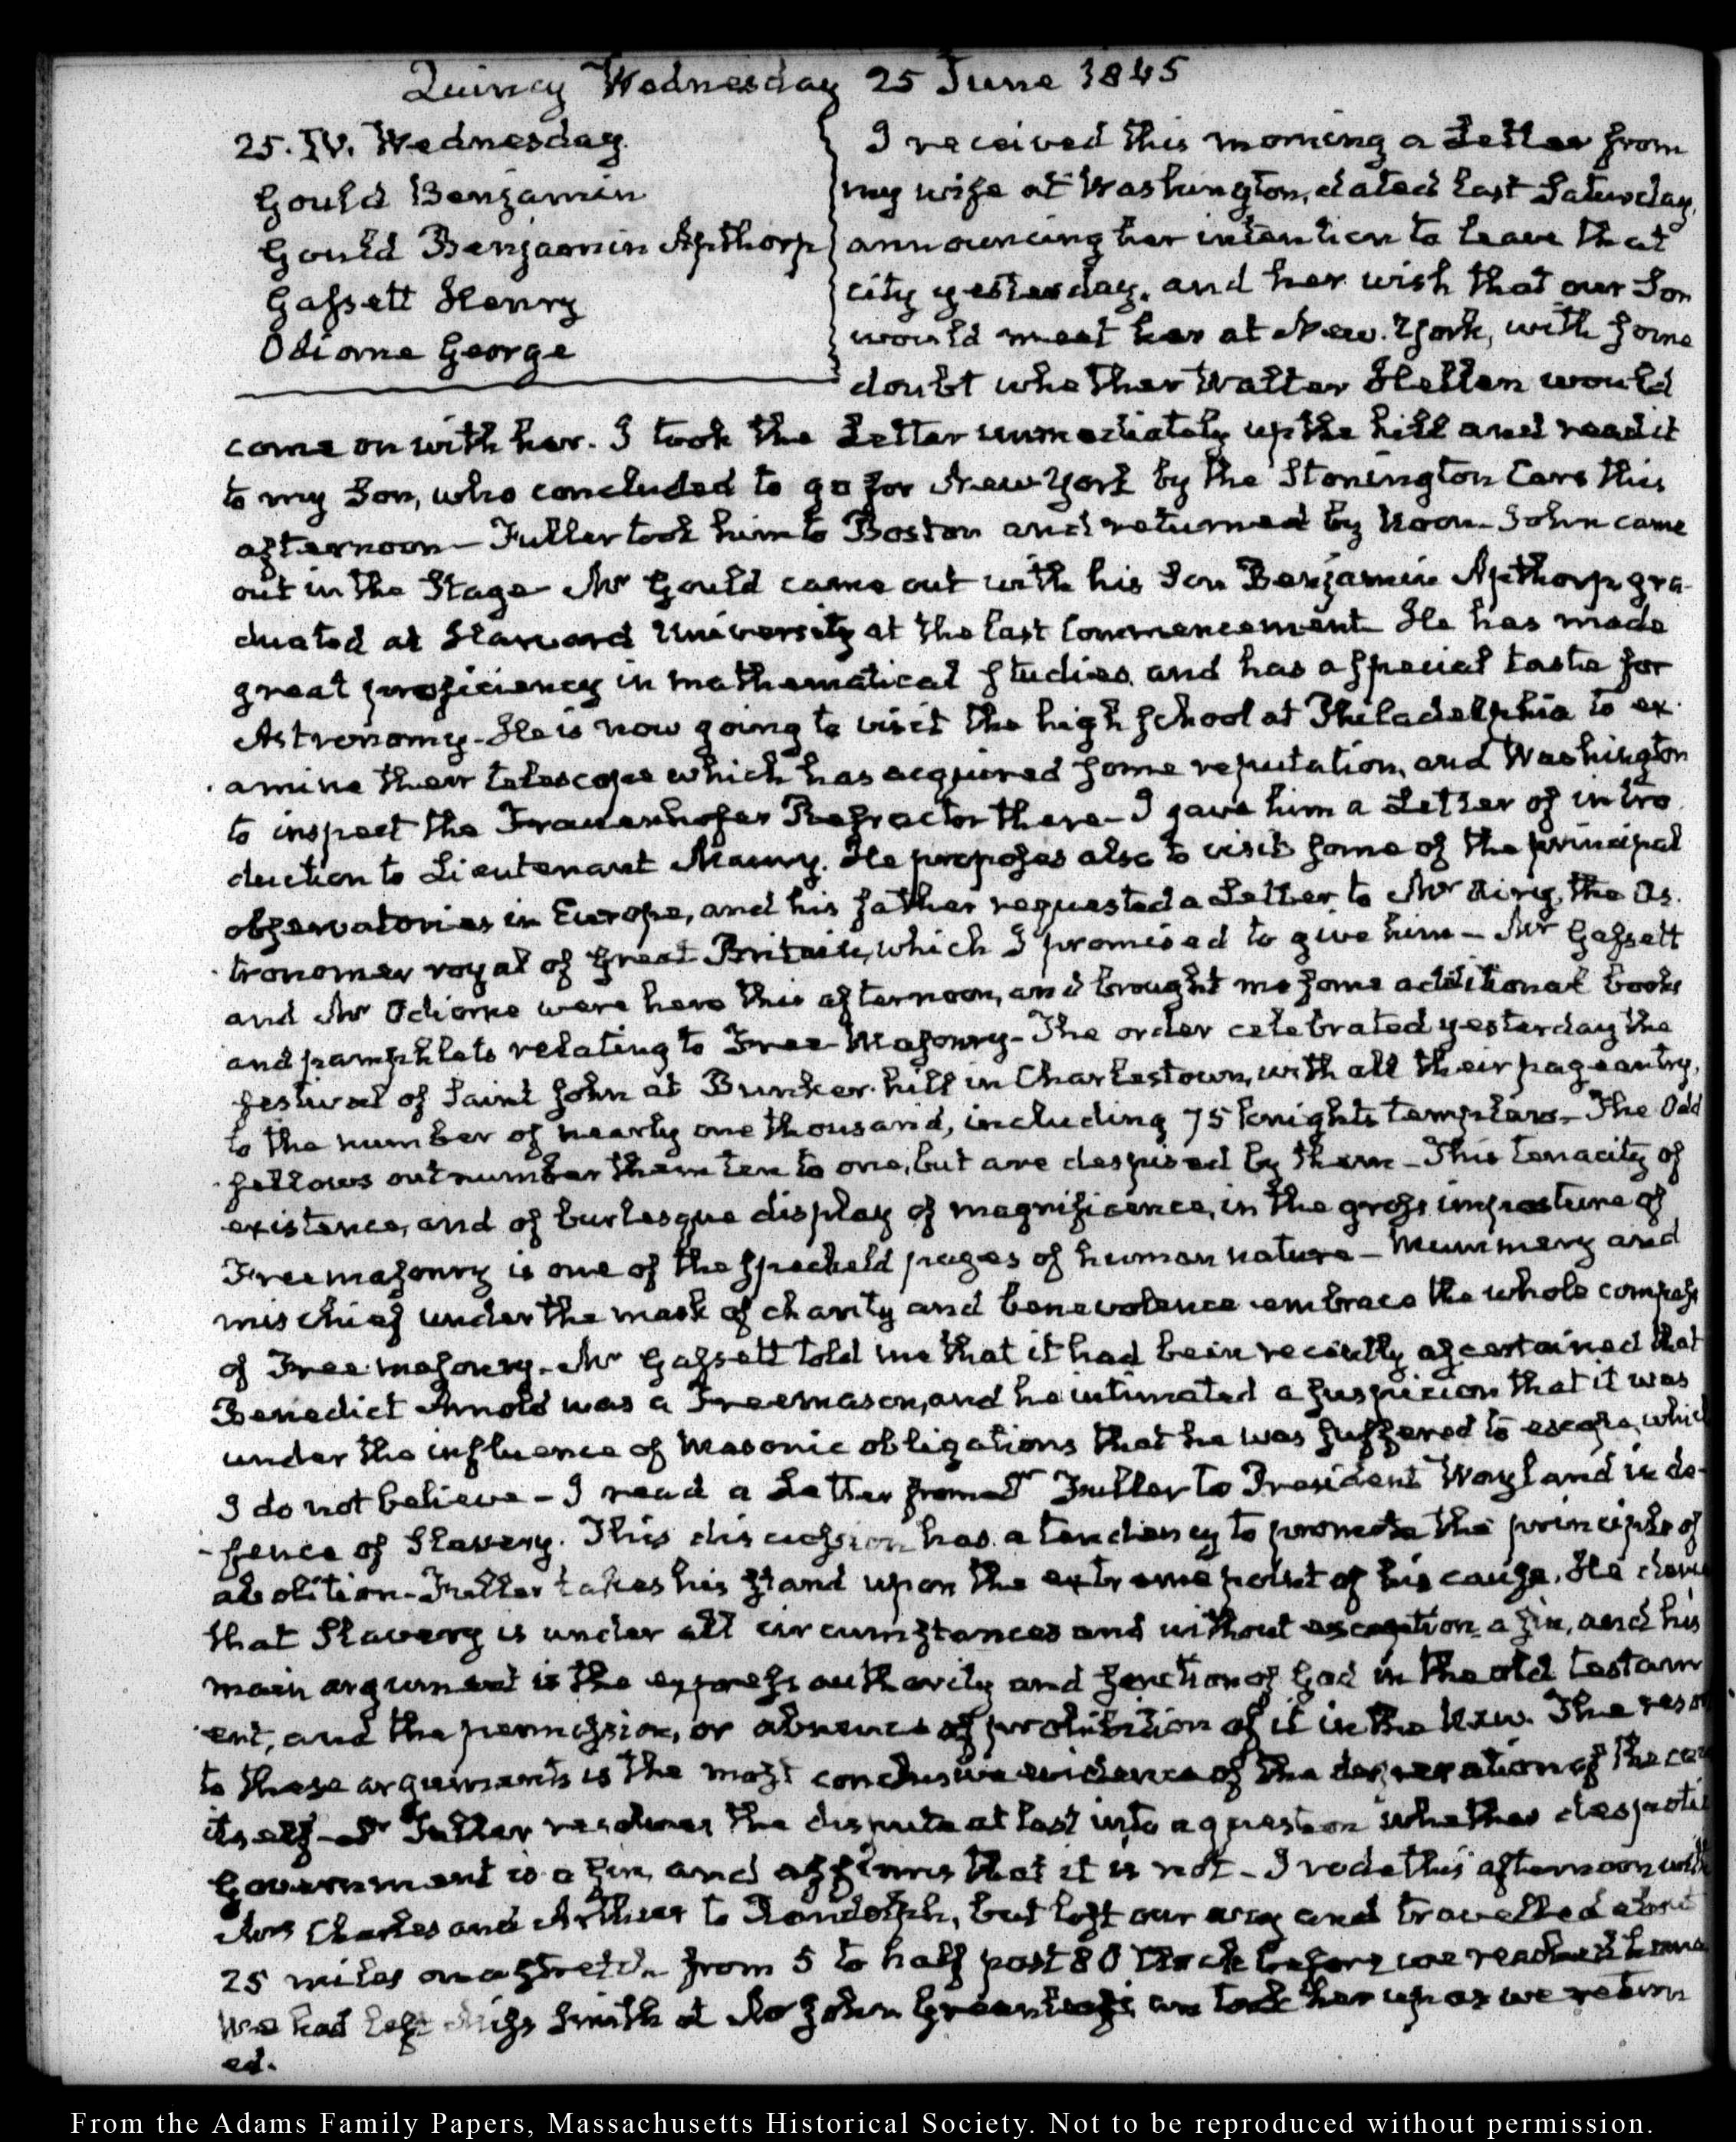 Quincy Wednesday 25 June 1845
25. IV. Wednesday.
Gould Benjamin
Gould Benjamin Apthorp
Gassett Henry
Odiorne George
I received this morning a Letter from
my wife at Washington, dated last Saturday,
announcing her intention to leave that
city yesterday, and her wish that our Son
would meet her at New-York, with some
doubt whether Walter Hellen would
come on with her. I took the Letter immediately up the hill and read it
to my Son, who concluded to go for New York by the Stonington Cars this
afternoon — Fuller took him to Boston and returned by Noon — John came
out in the Stage — Mr Gould came out with his Son Benjamin Apthorp gra-
duated at Harvard University at the last Commencement. He has made
great proficiency in mathematical studies, and has a special taste for
Astronomy — He is now going to visit the high school at Philadelphia to ex-
amine their telescope which has acquired some reputation, and Washington
to inspect the Frauenhofer Refractor there — I gave him a Letter of intro-
duction to Lieutenant Maury. He proposes also to visit some of the principal
observatories in Europe, and his father requested a Letter to Mr Airy, the As-
tronomer royal of Great Britain, which I promised to give him — Mr Gassett
and Mr Odiorne were here this afternoon, and brought me some additional books
and pamphlets relating to Free-Masonry — The order celebrated yesterday the
festival of Saint John at Bunker-hill in Charlestown, with all their pageantry,
to the number of nearly one thousand, including 75 knights templars — The Odd
fellows outnumber them ten to one, but are despised by them — This tenacity of
existence, and of burlesque display of magnificence, in the gross imposture of
Freemasonry is one of the speckeld pages of human nature — Mummery and
mischief under the mask of charity and benevolence embrace the whole compass
of Freemasonry — Mr Gassett told me that it had been recently ascertained that
Benedict Arnold was a Freemason, and he intimated a suspicion that it was
under the influence of Masonic obligations that he was suffered to escape, which
I do not believe — I read a Letter from Dr Fuller to President Wayland in de-
fence of Slavery. This discussion has a tendency to promote the principle of
abolition — Fuller takes his stand upon the extreme point of his cause. He
that Slavery is under all circumstances and without exception a sin, and his
main argument is the express authority and sanction of God in the old testam-
ent, and the permission, or absence of prohibition of it in the New. The
to these arguments is the most conclusive evidence of the desperation of the
itself — Dr Fuller resolves the dispute at last into a question whether
Government is a sin, and affirms that it is not — I rode this afternoon with
Mrs Charles and Arthur to Randolph, but lost our way and travelled about
25 miles on a stretch from 5 to half past 8 O'Clock before we reached home
We had left Miss Smith at Mr John Greenleaf's, we took her up as we return
ed.
From the Adams Family Papers, Massachusetts Historical Society. Not to be reproduced without permission.